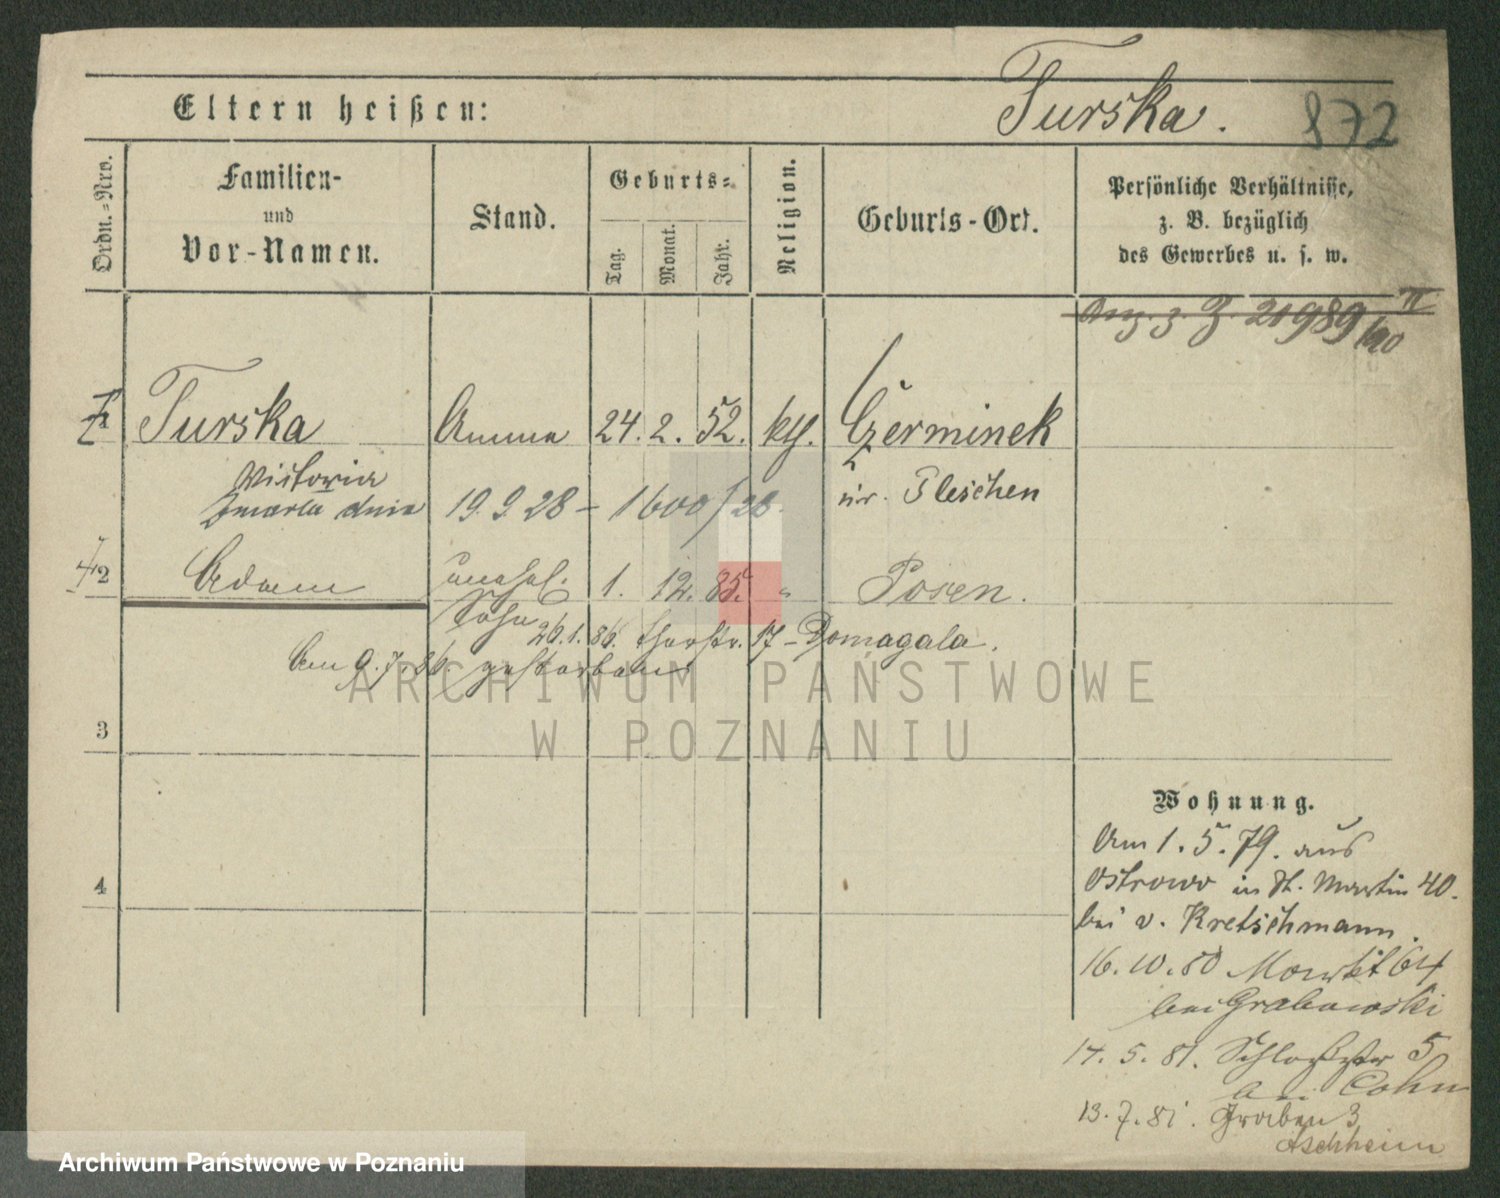 Turska.
872
Eltern heißen:
Ordn.-Nrs.
Familien-
und
Vor-Namen.
Stand.
Geburts-
Tag.
Monat.
Jahr.
Religion.
Geburts-Ort.
Persönliche Verhältnisse,
z. B. bezüglich
des Gewerbes u. s. w.
Anz. z. 21989
1 Turska Amme 24. 2. 52. kth. Czerminek
Victoria
Zmarła dnia 19. 9. 28 - 1600/28. Kr. Pleschen
2 Adam unehel. 1. 12. 85. " Posen.
Sohn
26. 1. 86. Thorstr. 17 - Domagala.
Am 9. 7. 86 gestorben
3
4
Wohnung.
Am 1. 5. 79. aus
Ostrowo in St. Martin 40.
bei v. Kretschmann.
16. 10. 80 Markt 64
bei Grabowski
14. 5. 81. Schloßstr 5
bei Cohn
13. 7. 81. Graben 3
Aschheim
ARCHIWUM PAŃSTWOWE
W POZNANIU
Archiwum Państwowe w Poznaniu